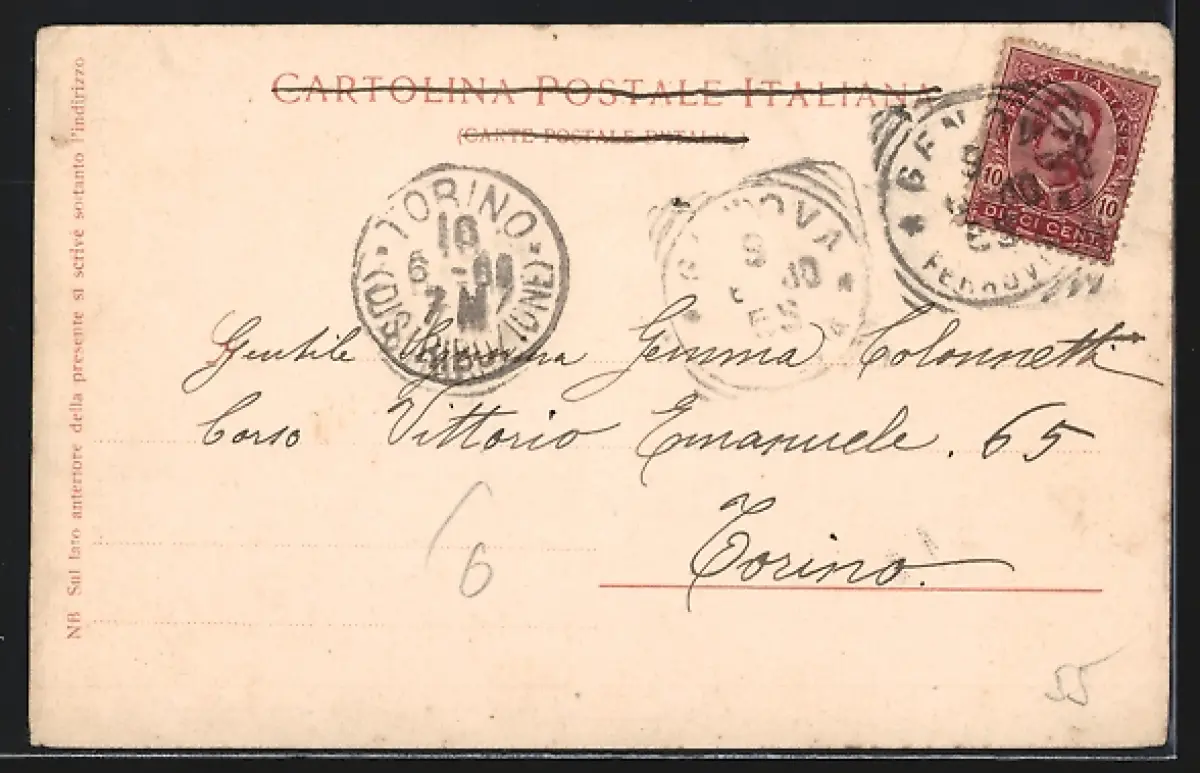 CARTOLINA POSTALE ITALIANA
(CARTE POSTALE D'ITALIE)
POSTE ITALIANE
10 10
DIECI CENT.
GENOVA
FERROVIA
GENOVA
9 10
TORINO
10
6
7
(DISTRIBUZIONE)
Gentile Signorina Gemma Colonnetti
Corso Vittorio Emanuele. 65
Torino.
6
55
NB Sul lato anteriore della presente si scrive soltanto l'indirizzo